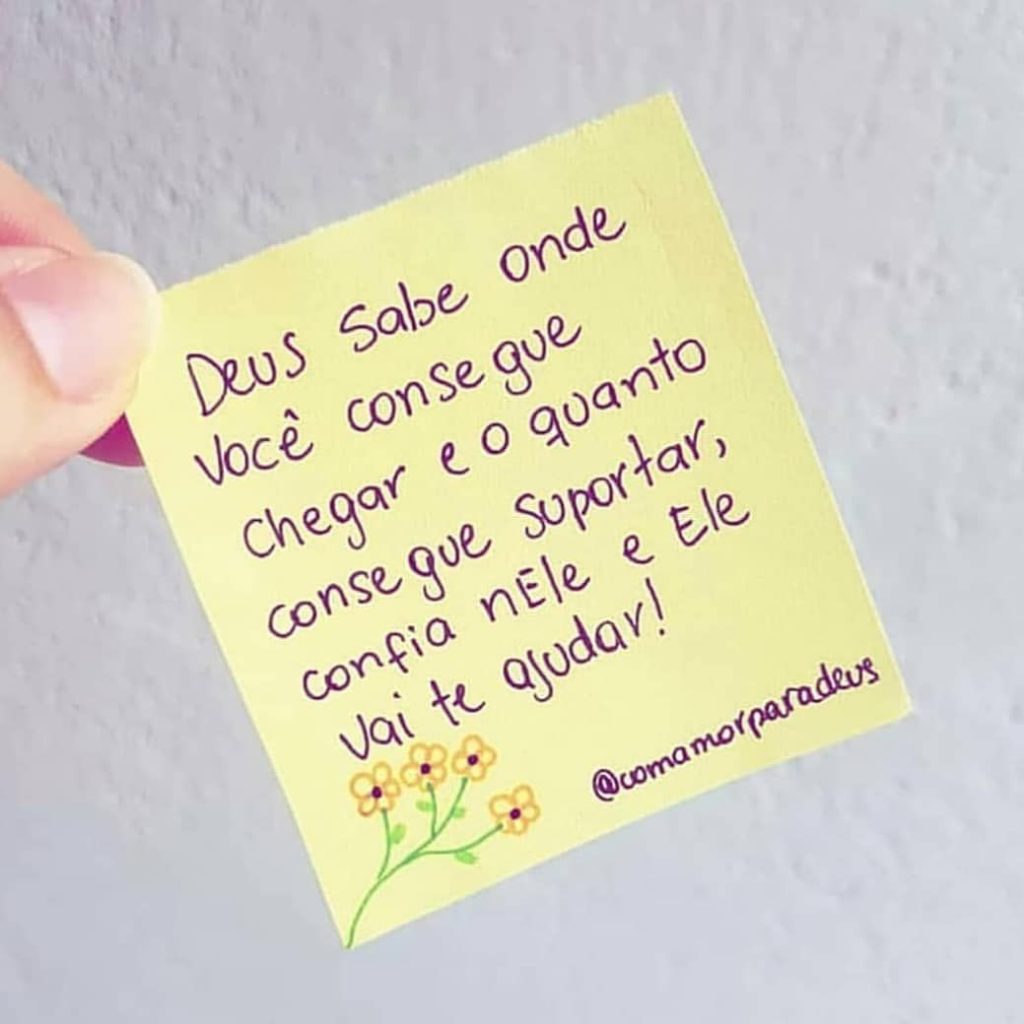 Deus sabe onde
você consegue
chegar e o quanto
consegue suportar,
confia nEle e Ele
vai te ajudar!
@comamorparadeus